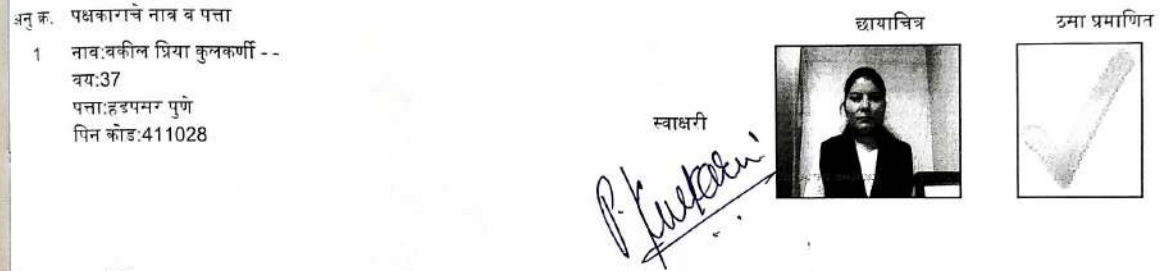 अनु क्र. पक्षकाराचे नाव व पत्ता
छायाचित्र
ठसा प्रमाणित
1 नाव:वकील प्रिया कुलकर्णी - -
वय:37
पत्ता:हडपसर पुणे
पिन कोड:411028
स्वाक्षरी
P. Kulkarni